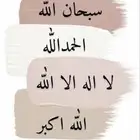 سبحان الله
الحمدالله
لا اله الا الله
الله اكبر